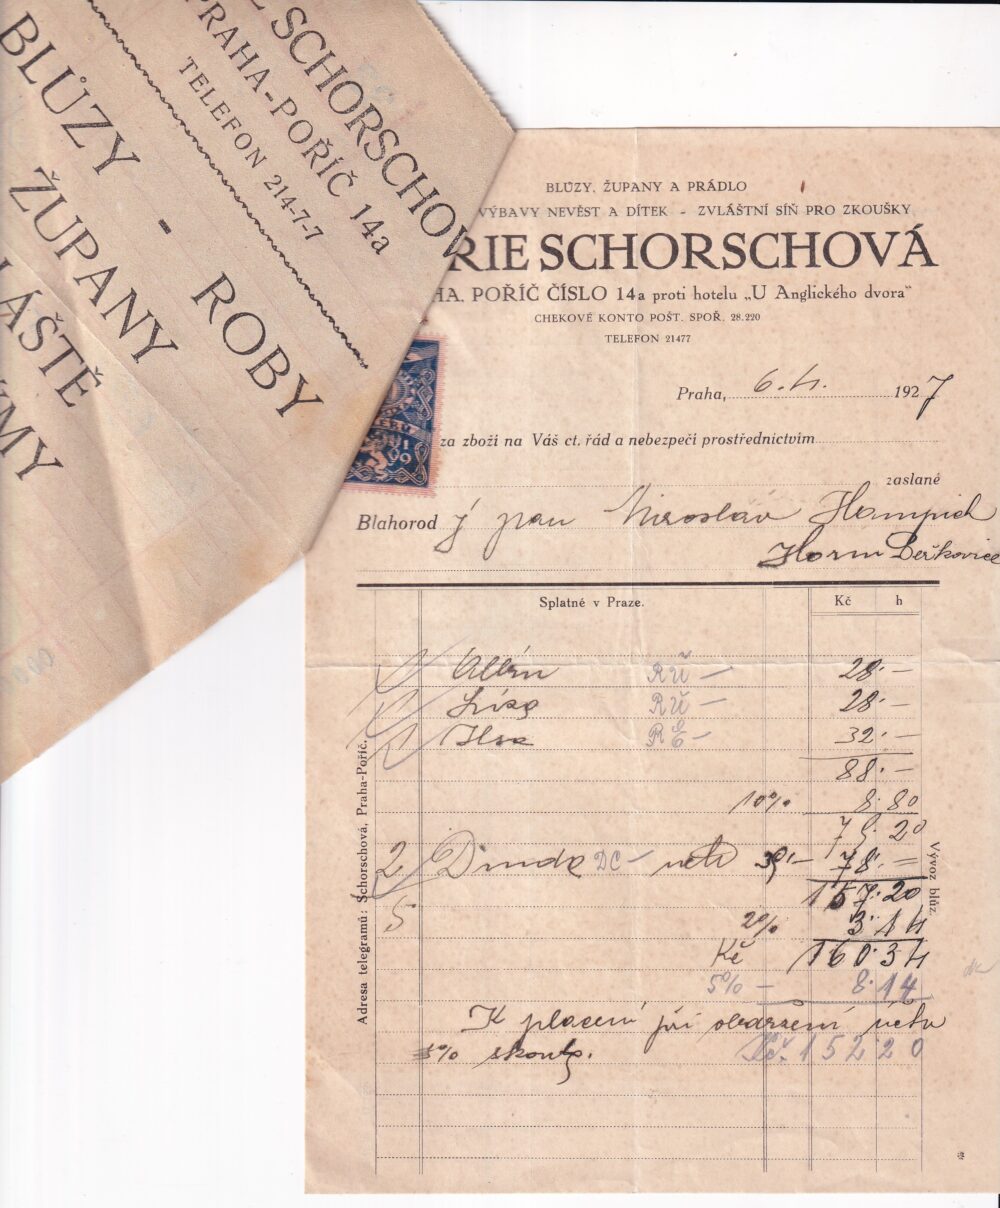 E SCHORSCHOV
PRAHA-POŘÍČ 14a
TELEFON 214-7-7
BLŮZY - ROBY
ŽUPANY
LÁŠTĚ
YMY
BLŮZY, ŽUPANY A PRÁDLO
VÝBAVY NEVĚST A DÍTEK - ZVLÁŠTNÍ SÍŇ PRO ZKOUŠKY
RIE SCHORSCHOVÁ
HA, POŘÍČ ČÍSLO 14a proti hotelu „U Anglického dvora"
CHEKOVÉ KONTO POŠT. SPOŘ. 28.220
TELEFON 21477
Praha, 6.4. 1927
za zboží na Váš ct. řád a nebezpečí prostřednictvím
zaslané
Blahorod ý pan Miroslav Hampich
Horní Beřkovice
Splatné v Praze. Kč h
1 RŮ — 28·—
1 RŮ — 28·—
1 Ilsa 32·—
88·—
10% 8·80
79·20
2 DC — netto 39·— 78·=
157·20
5 2% 3·14
Kč 160·34
5% — 8·14
K placení při obdržení účtu
5% skonto. Kč 152 20
Adresa telegramů: Schorschová, Praha-Poříč.
Vývoz blůz.